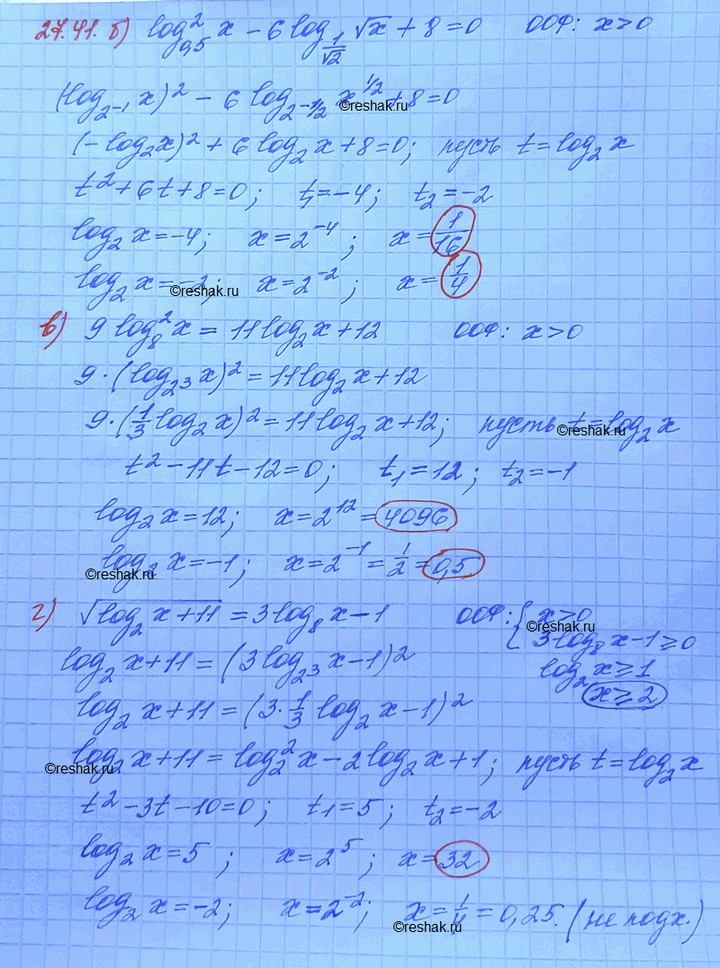 27.41. б) log²₀,₅ x − 6 log_{1/√2} √x + 8 = 0   ООФ: x > 0
(log_{2⁻¹} x)² − 6 log_{2^{-1/2}} x^{1/2} + 8 = 0
©reshak.ru
(−log₂x)² + 6 log₂ x + 8 = 0; пусть t = log₂ x
t² + 6t + 8 = 0; t₁ = −4; t₂ = −2
log₂ x = −4; x = 2⁻⁴; x = 1/16
log₂ x = −2; x = 2⁻²; x = 1/4
©reshak.ru
в) 9 log₈² x = 11 log₂ x + 12   ООФ: x > 0
9 · (log_{2³} x)² = 11 log₂ x + 12
9 · (1/3 log₂ x)² = 11 log₂ x + 12; пусть t = log₂ x
©reshak.ru
t² − 11t − 12 = 0; t₁ = 12; t₂ = −1
log₂ x = 12; x = 2¹² = 4096
log₂ x = −1; x = 2⁻¹ = 1/2 = 0,5
©reshak.ru
г) √(log₂ x + 11) = 3 log₈ x − 1   ООФ: { x > 0
©reshak.ru
3 log₈ x − 1 ≥ 0
log₂ x + 11 = (3 log_{2³} x − 1)²   log₂ x ≥ 1
x ≥ 2
log₂ x + 11 = (3 · 1/3 log₂ x − 1)²
log₂ x + 11 = log₂² x − 2 log₂ x + 1; пусть t = log₂ x
©reshak.ru
t² − 3t − 10 = 0; t₁ = 5; t₂ = −2
log₂ x = 5; x = 2⁵; x = 32
log₂ x = −2; x = 2⁻²; x = 1/4 = 0,25. (не подх.)
©reshak.ru